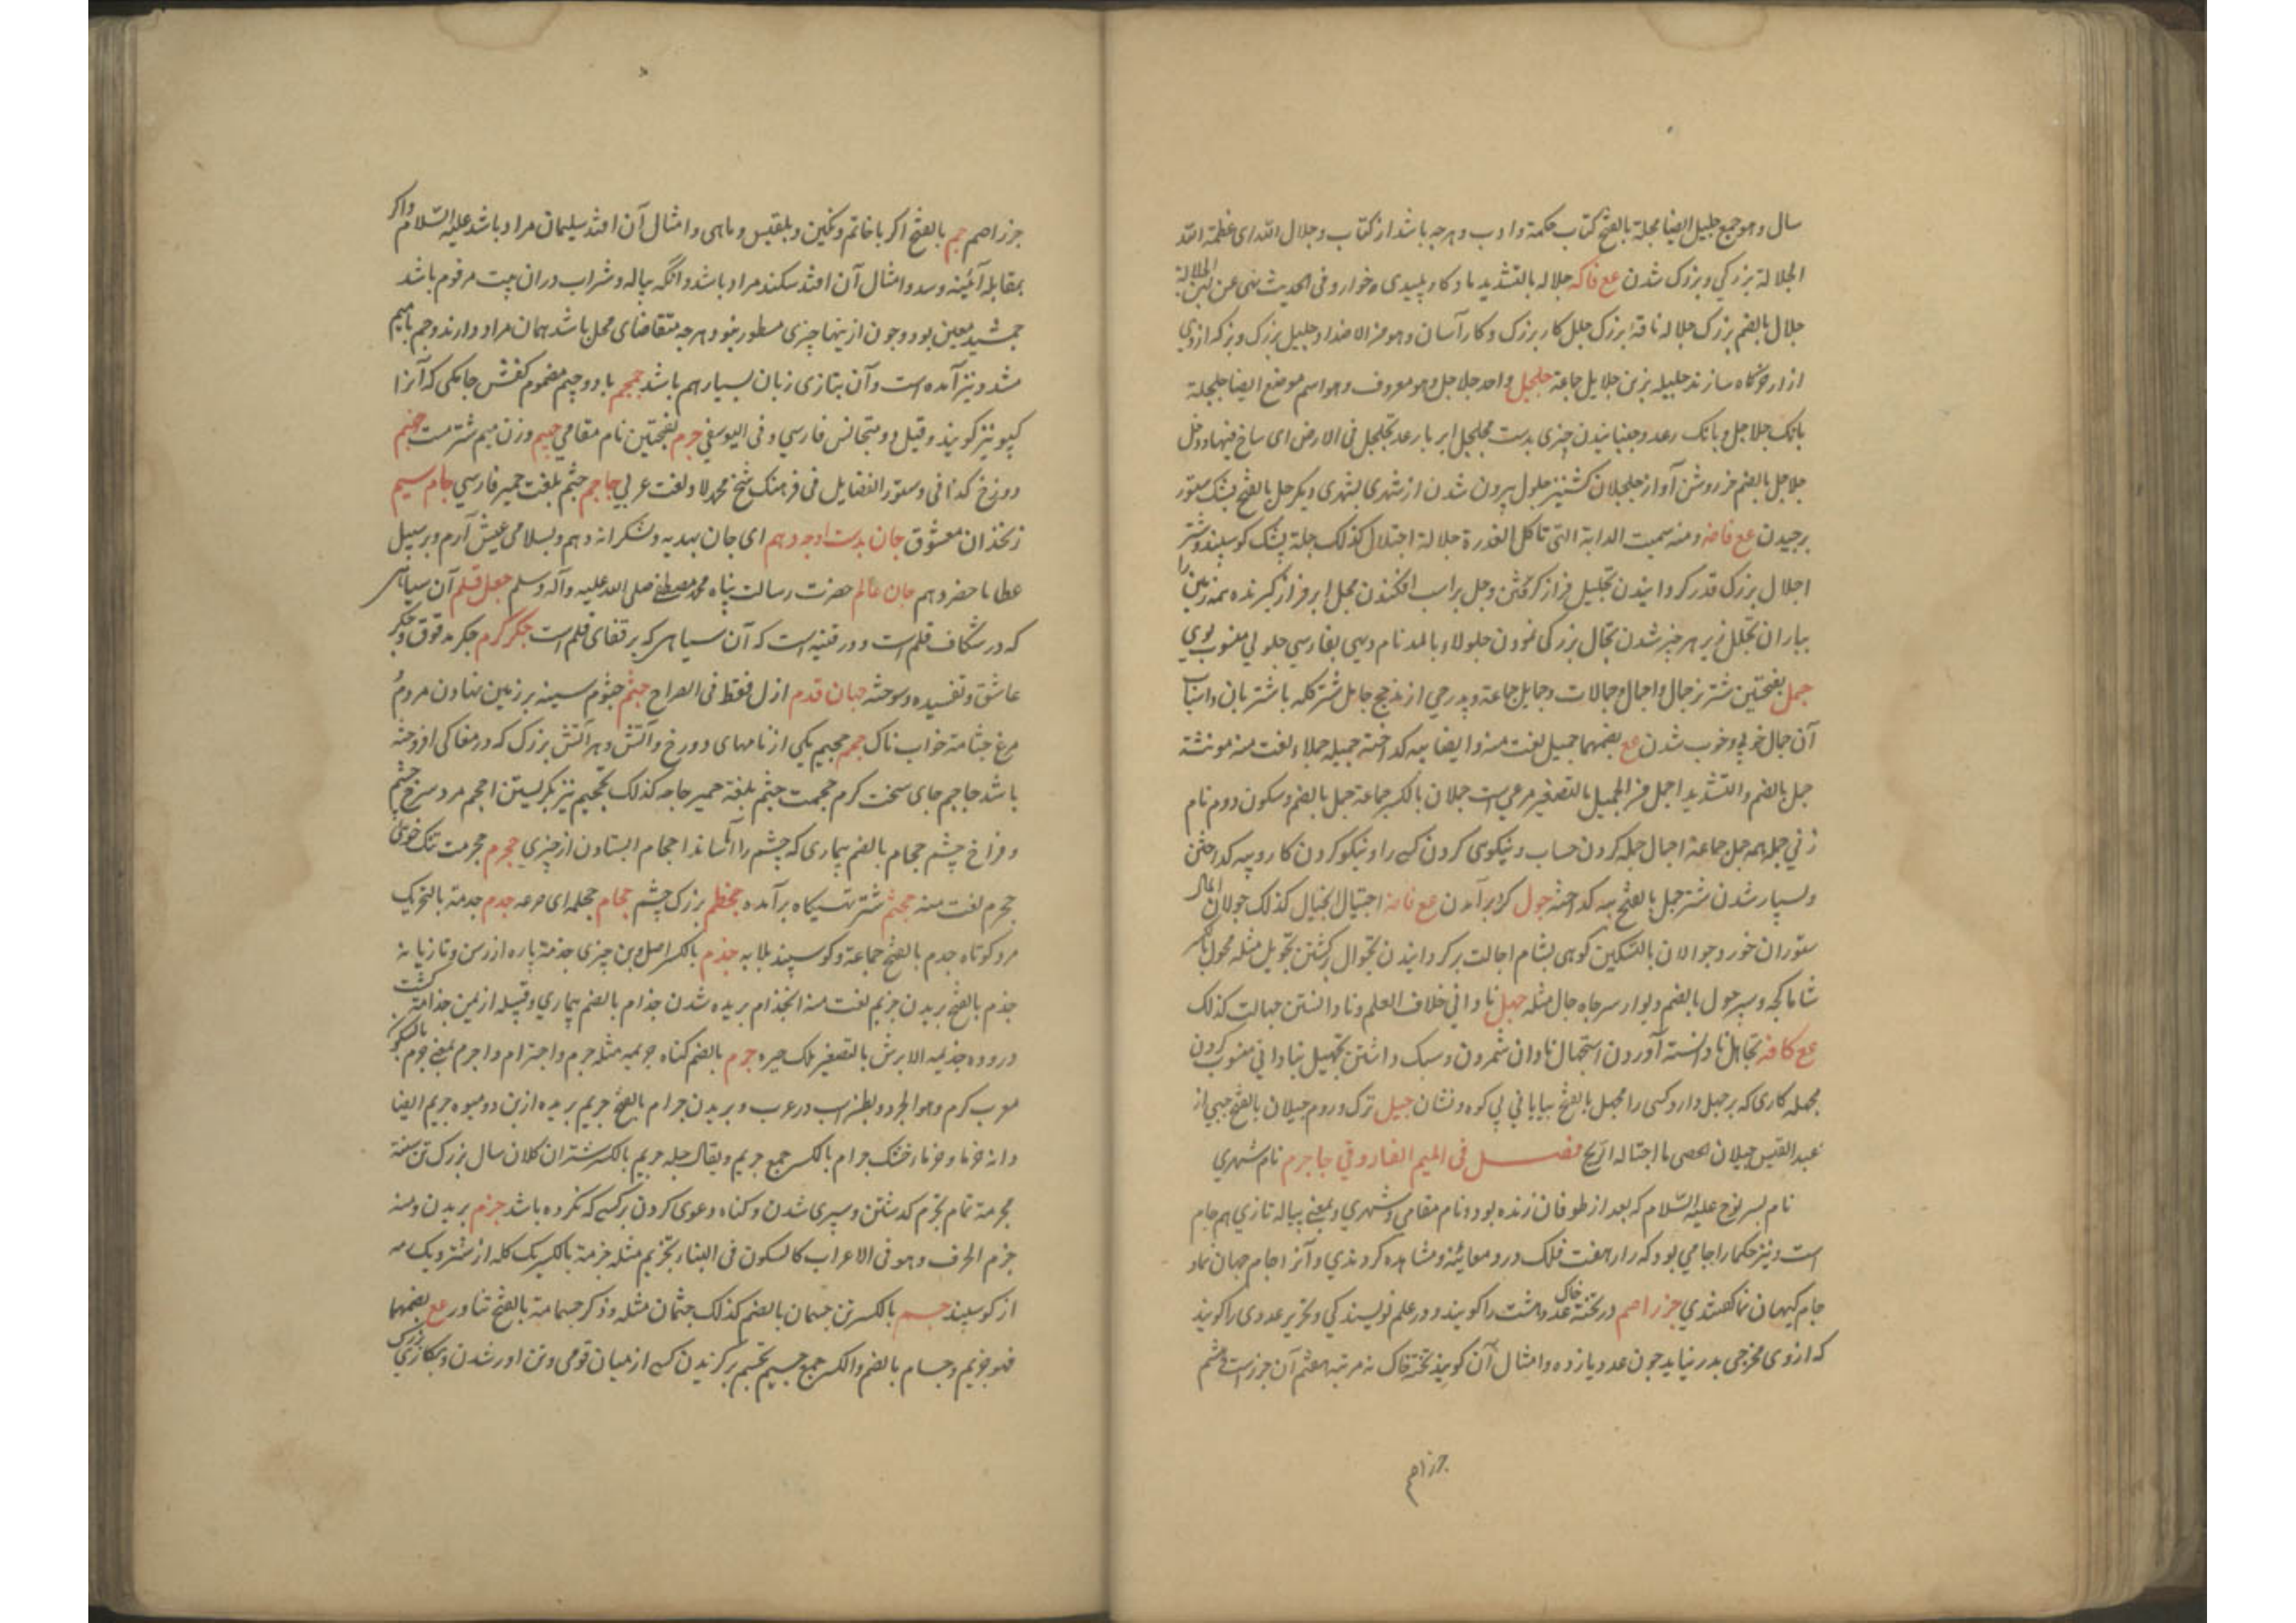 سال و هو جمع جلیل ایضا مجلة بالفتح کتاب حکمة و ادب و هرچه باشد از کتاب و جلال الله ای عظمة الله
الجلالة بزرکی و بزرک شدن عع فاکه جلاله بالتشدید ماده کاو پلیدی خوار و فی الحدیث نهی عن لبن الجلالة
جلال بالضم بزرک جلاله ناقة بزرک جلل کار بزرک و کار آسان و هو من الاضداد جلیل بزرک و بزکر از وی
سازند جلیله بزین جلایل جماعة جلجل واحد جلاجل و هو معروف و هو اسم موضع ایضا جلجلة
بانک جلاجل و بانک رعد و جنبانیدن چیزی بدست مجلجل ابر با رعد تجلجل فی الارض ای ساخ فیها و دخل
جلاجل بالضم خر روشن آواز جلجلان کشنیز جلول بیرون شدن از شهری بشهری دیکر جل بالفتح پشک ستور
برچیدن عع فاضه و منه سمیت الدابة التی تاکل العذرة جلالة اجتلال کذلک جلة پشک کوسپند و شتر
اجلال بزرک قدر کردانیدن تجلیل فراز کرفتن و جل بر اسب افکندن مجلل ابر فراز کیرنده همه زمین را
بباران تجلل زبر هر چیز شدن تجال بزرکی نمودن جلولاء بالمد نام دیهی بفارسی جلولی منسوب بوی
جمل بفتحتین شتر نر جمال و اجمال و جمالات و جمایل جماعة و پدر حیی از مذحج جامل شتر کله با شتربان و
آن جمال خوبی و خوب شدن عع بضمهما جمیل نعت منه و ایضا پیه کداخته جمیله جملاء نعت منه مونثة
جمل بالضم و التشدید اجمل من الجمیل بالتصغیر مرغی است جملان بالکسر جماعة جمل بالضم و سکون دوم نام
زنی جمله همه جمل جماعة اجمال جمله کردن حساب و نیکوی کردن کسی را و نیکو کردن کار و پیه کداختن
و بسیار شدن شتر جمل بالفتح پیه کداخته جول کرد برآمدن عع فاضه اجتیال انجیال کذلک جولان المال
ستوران خورد و جولان بالتسکین کوهی بشام اجالت برکردانیدن تجوال کشتن تجویل مثله مجول بالکسر
شاماکچه و سپر جول بالضم دیوار سر چاه جال مثله جهل نادانی خلاف العلم و نادانستن جهالت کذلک
عع کافه تجاهل نادانسته آوردن استجهال نادان شمردن و سبک داشتن تجهیل بنادانی منسوب کردن
مجهله کاری که بر جهل دارد کسی را مجهل بالفتح بیابانی بی کوه و نشان جیل ترک و روم جیلان بالفتح حیی از
عبد القیس جیلان الحصی ما اجتاله الریح فصل فی المیم الفاروقی جاجرم نام شهری
نام پسر نوح علیه السلام که بعد از طوفان زنده بود و نام مقامی و شهری و بمعنی پیاله تازی هم جام
است و نیز حکما را جامی بود که راز هفت فلک درو معاینه و مشاهده کردندی و آنرا جام جهان نما و
جام کیهان نما کفتندی جزر اصم در تخته خاک عدد هشت را کویند و در علم نویسندکی و تحریر عددی را کویند
که از وی مخرجی بدر نیاید چون عدد یازده و امثال آن کویند تخته خاک نه مرتبه هشتم آن جزر است
جزر اصم
جزر اصم جم بالفتح اکر با خاتم و نکین و بلقیس و ماهی و امثال آن افتد سلیمان مراد باشد علیه السلام و اکر
بمقابله آئینه و سد و امثال آن افتد سکندر مراد باشد و انکه پیاله و شراب دران بیت مرقوم باشد
جمشید معین بود و چون ازینها چیزی مسطور نبود هرچه متقاضای محل باشد همان مراد دارند و جم بامیم
مشدد نیز آمده است و آن بتازی زبان بسیار هم باشد جمجم با دو جیم مضموم کفش جامکی که آنرا
کیو نیز کویند و قیل و متجانس فارسی و فی الیوسفی جرم بفتحتین نام مقامی جیم وزن میم شتر مست جهنم
دوزخ کذا فی دستور الفضایل فی فرهنک شیخ محمد لاد لغت عربی جاحم جثم بلغت حمیر فارسی جام سیم
زنخدان معشوق جان بدست اوچه دهم ای جان بهدیه و شکرانه دهم و بسلامی عیش آرم و بر سبیل
عطا ما حضر دهم جان عالم حضرت رسالت پناه محمد مصطفی صلی الله علیه و آله و سلم جعل قلم آن سیاهی
که در شکاف قلم است و در قنیه است که آن سیاهی که بر قفای قلم است جکر کرم جکر مدقوق و جکر
عاشق و تفسیده و سوخته جهان قدم ازل فقط فی الصراح جثم جثوم سینه بر زمین نهادن مردم و
مرغ جثامة خواب ناک جحم جحیم یکی از نامهای دوزخ و آتش و هر آتش بزرک که در مغاکی افروخته
باشد جاحم جای سخت کرم جحمت چشم بلغة حمیر جاحمه کذلک تجحیم تیز نکریستن اجحم مرد سرخ چشم
و فراخ چشم جحام بالضم بیماری که چشم را آماساند احجام ایستادن از چیزی جحرم جحرمت تنک خوی
جحرم نعت منه جحشم شتر تهیکاه برآمده جحظم بزرک چشم جحام جحلمه ای صرعه جدم جدمة بالتحریک
مرد کوتاه جدم بالفتح جماعة و کوسپند بلایه جذم بالکسر اصل و بن چیزی جذمة پاره از رسن و تازیانه
جذم بالفتح بریدن جزیم نعت منه انجذام بریده شدن جذام بالضم بیماری و قبیله از یمن جذامة کشت
دروده جذیمه الابرش بالتصغیر ملک حیره جرم بالضم کناه جریمه مثله جرم و اجترام و اجرام بمعنی جرم بالسکون
معرب کرم و هو الحر و بطنی است در عرب و بریدن جرام بالفتح جریم بریده از بن دو میوه جریم ایضا
دانه خرما و خرما خشک جرام بالکسر جمع جریم و یقال جله جریم بالکسر شتران کلان سال بزرک تن سنة
مجرمة تمام تجرم کذشتن و سپری شدن و کناه دعوی کردن بر کسی که نکرده باشد جزم بریدن و منه
جزم الحرف و هو فی الاعراب کالسکون فی البناء تجزیم مثله جزمة بالکسر یک کله از شتر و یک رمه
از کوسپند جسم بالکسر تن جسمان بالضم کذلک جثمان مثله و ذکر جسامة بالفتح تناور عع بضمهما
فهو جزیم و جسام بالضم و الکسر جمع جسیم تجسم برکزیدن کسی از میان قومی و تن اور شدن و بکاری بزرک